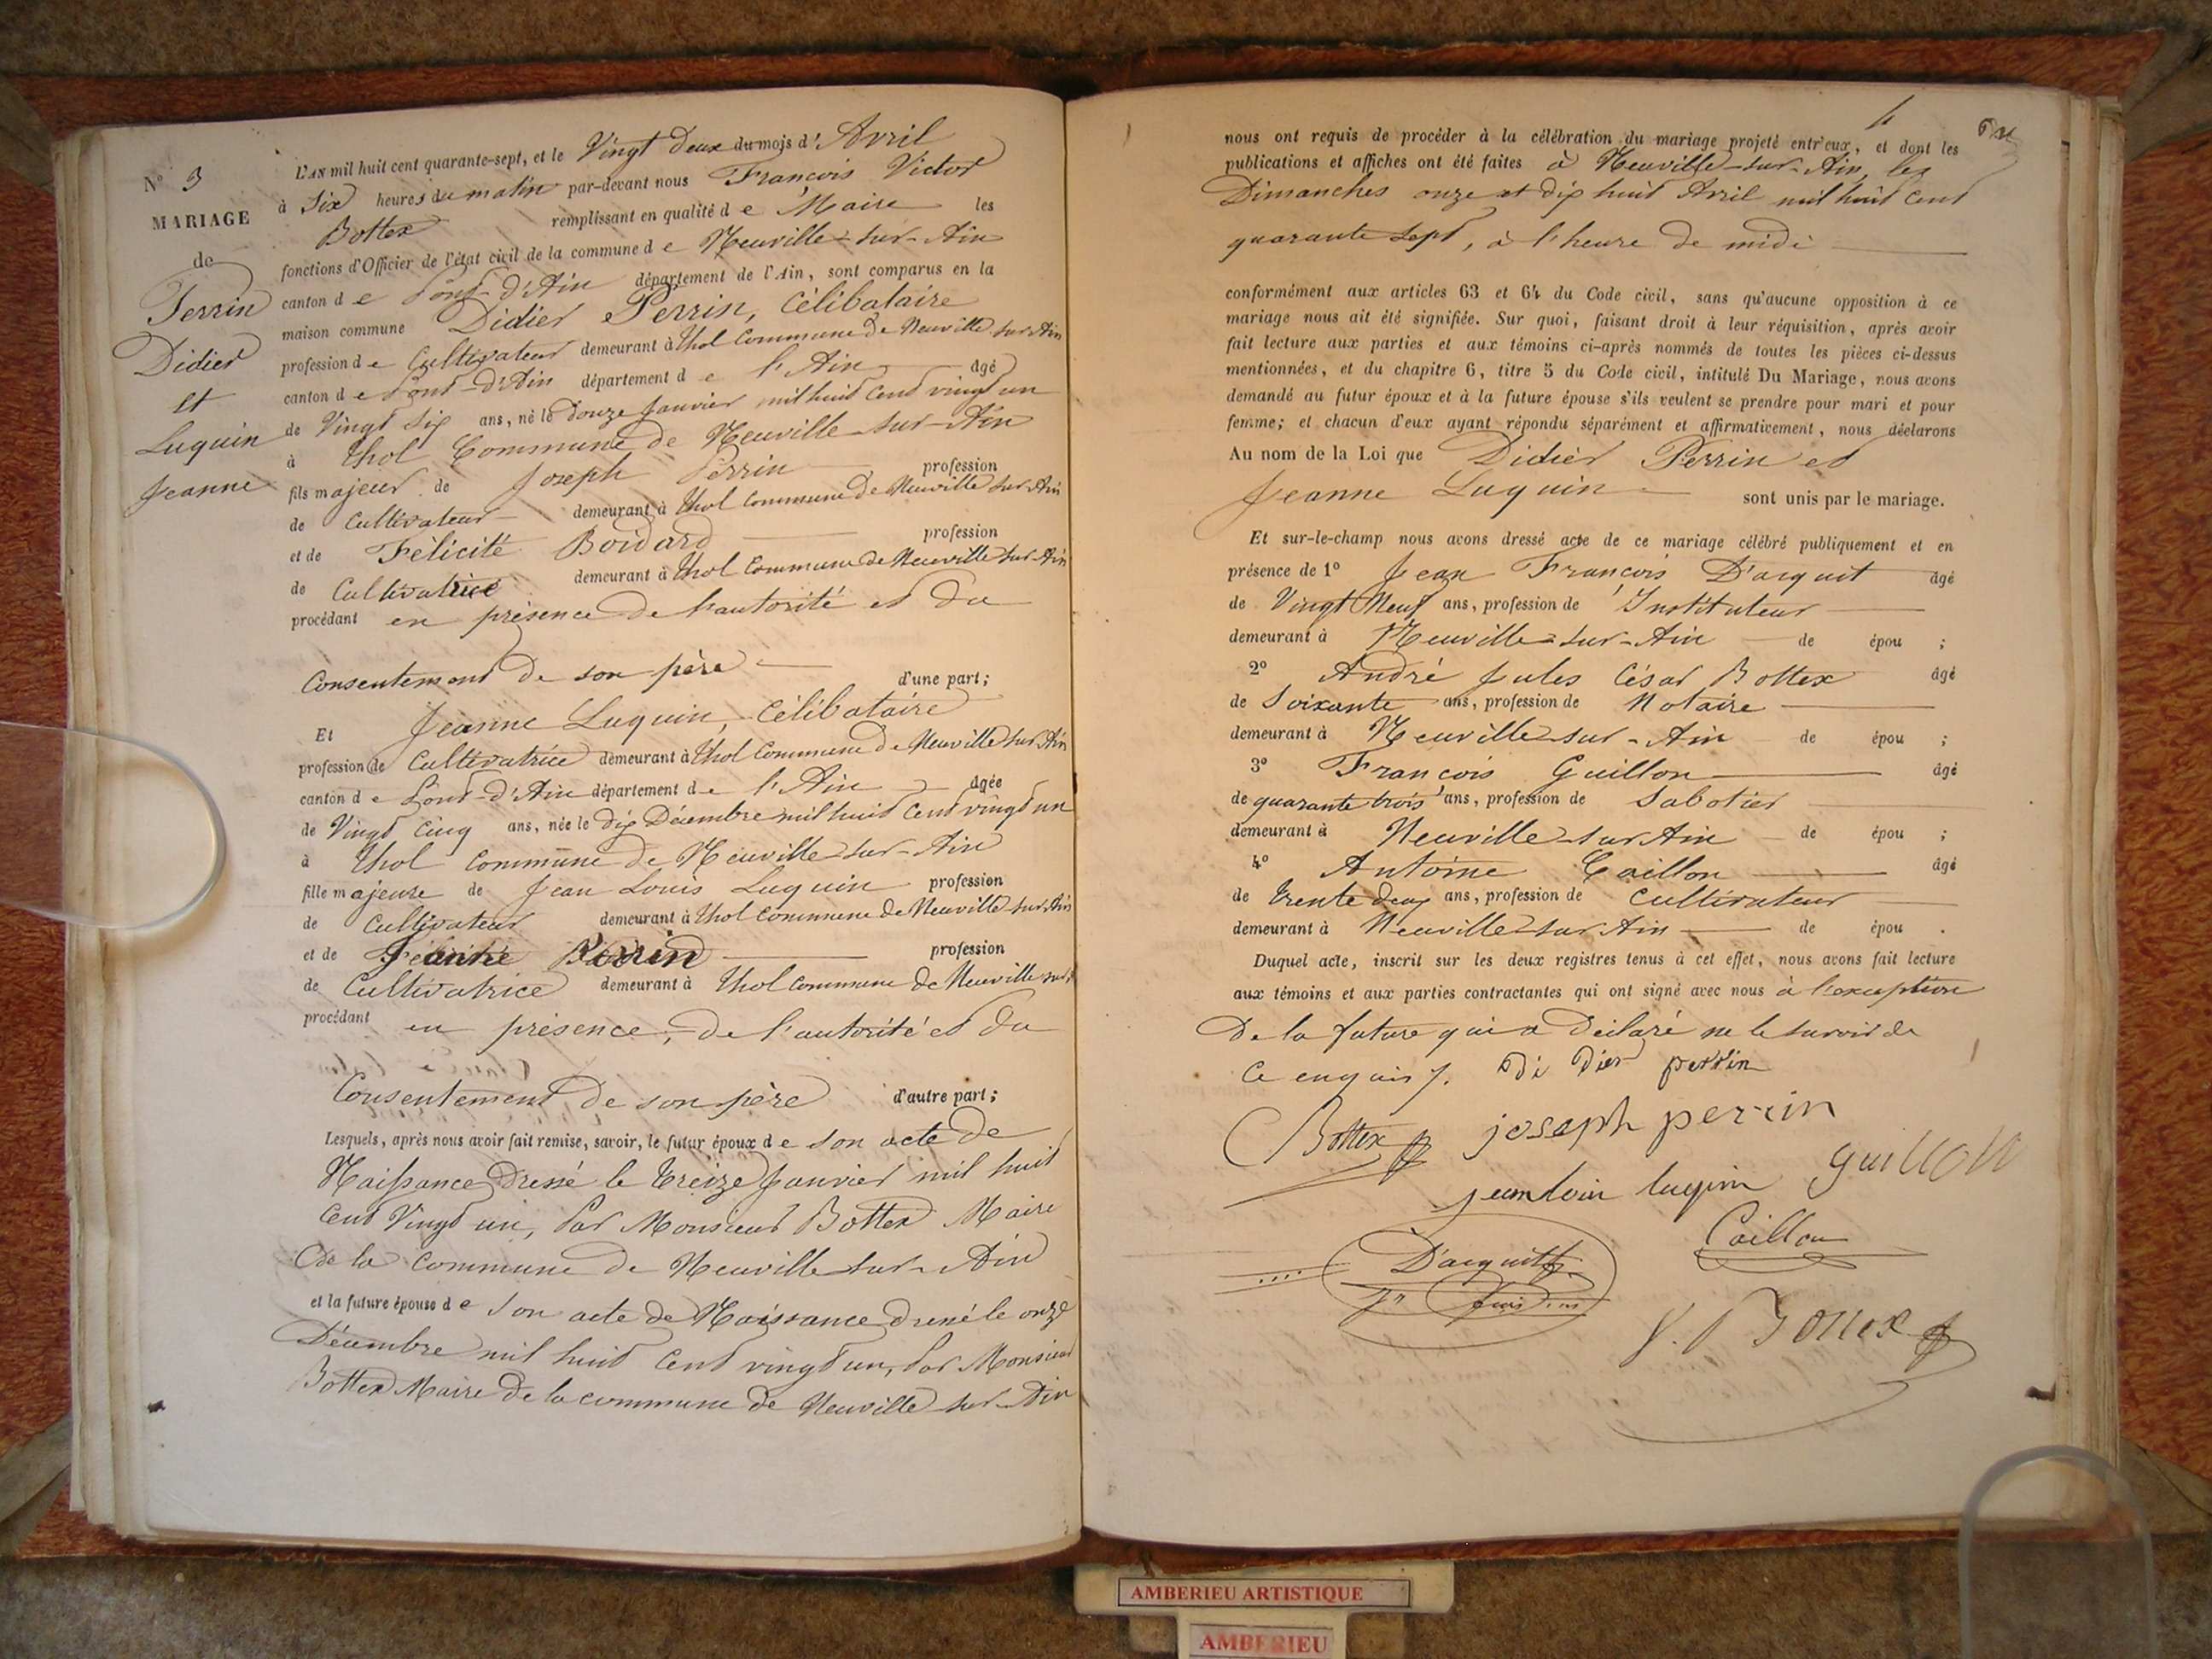 N° 3
MARIAGE
de
Perrin
Didier
et
Luquin
Jeanne
L'AN mil huit cent quarante-sept, et le Vingt Deux du mois d'Avril
à Six heures du matin par-devant nous François Victor
Bottex remplissant en qualité de Maire les
fonctions d'Officier de l'état civil de la commune de Neuville-sur-Ain
canton de Pont-d'Ain département de l'Ain, sont comparus en la
maison commune Didier Perrin, Célibataire
profession de Cultivateur demeurant à Thol Commune de Neuville sur Ain
canton de Pont-d'Ain département de l'Ain âgé
de Vingt Six ans, né le Douze Janvier mil huit Cent vingt un
à Thol Commune de Neuville-sur-Ain
fils majeur de Joseph Perrin profession
de Cultivateur demeurant à Thol Commune de Neuville sur Ain
et de Félicité Boidard profession
de Cultivatrice demeurant à Thol Commune de Neuville sur-Ain
procédant en présence de l'autorité et du
Consentement de son père d'une part;
Et Jeanne Luquin, Célibataire
profession de Cultivatrice demeurant à Thol Commune de Neuville sur Ain
canton de Pont-d'Ain département de l'Ain âgée
de Vingt Cinq ans, née le Dix Décembre mil huit Cent vingt un
à Thol Commune de Neuville-sur-Ain
fille majeure de Jean Louis Luquin profession
de Cultivateur demeurant à Thol Commune de Neuville-sur-Ain
et de Perrin profession
de Cultivatrice demeurant à Thol Commune de Neuville sur
procédant en présence, de l'autorité et du
Consentement de son père d'autre part;
Lesquels, après nous avoir fait remise, savoir, le futur époux de son acte de
Naissance Dressé le Treize Janvier mil huit
Cent Vingt un, Par Monsieur Bottex Maire
De la Commune de Neuville-sur-Ain
et la future épouse de son acte de Naissance Dressé le onze
Décembre mil huit Cent vingt un, Par Monsieur
Bottex Maire de la commune de Neuville sur-Ain
4
nous ont requis de procéder à la célébration du mariage projeté entr'eux, et dont les
publications et affiches ont été faites à Neuville-sur-Ain, les
Dimanches onze et dix huit Avril mil huit Cent
quarante sept, à l'heure de midi
conformément aux articles 63 et 64 du Code civil, sans qu'aucune opposition à ce
mariage nous ait été signifiée. Sur quoi, faisant droit à leur réquisition, après avoir
fait lecture aux parties et aux témoins ci-après nommés de toutes les pièces ci-dessus
mentionnées, et du chapitre 6, titre 5 du Code civil, intitulé Du Mariage, nous avons
demandé au futur époux et à la future épouse s'ils veulent se prendre pour mari et pour
femme; et chacun d'eux ayant répondu séparément et affirmativement, nous déclarons
Au nom de la Loi que Didier Perrin et
Jeanne Luquin sont unis par le mariage.
Et sur-le-champ nous avons dressé acte de ce mariage célébré publiquement et en
présence de 1° Jean François D'acquit âgé
de Vingt Neuf ans, profession de Instituteur
demeurant à Neuville-sur-Ain de épou ;
2° André Jules César Bottex âgé
de Soixante ans, profession de Notaire
demeurant à Neuville sur-Ain de épou ;
3° François Guillon âgé
de quarante trois ans, profession de Sabotier
demeurant à Neuville sur Ain de épou ;
4° Antoine Caillon âgé
de trente deux ans, profession de Cultivateur
demeurant à Neuville sur Ain de épou .
Duquel acte, inscrit sur les deux registres tenus à cet effet, nous avons fait lecture
aux témoins et aux parties contractantes qui ont signé avec nous à l'exception
De la future qui a Déclaré ne le savoir de
Ce enquis /. Di Dier perrin
Bottex joseph perrin
guillon
jean loui luquin
D'acquit Caillon
Bottex
AMBERIEU ARTISTIQUE
AMBERIEU